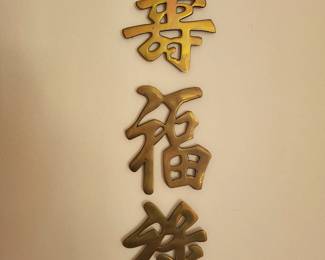 壽
福
祿